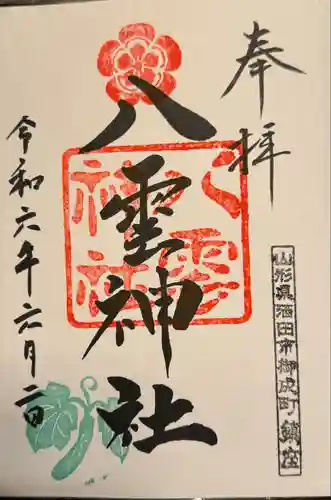 奉拝
山形県酒田市御成町鎮座
八雲神社
八雲神社
令和六年六月二日